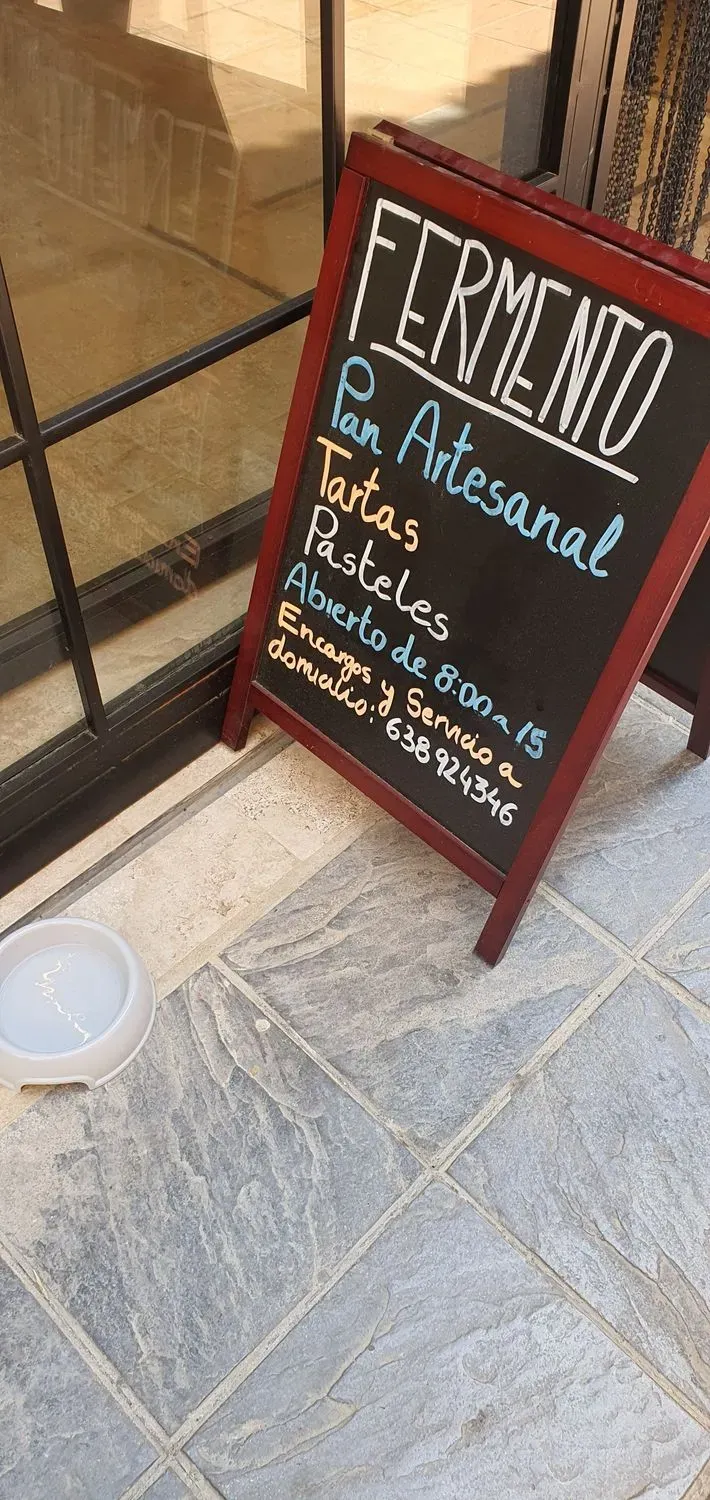 FERMENTO
Pan Artesanal
Tartas
Pasteles
Abierto de 8:00 a 15
Encargos y Servicio a
domicilio: 638924346